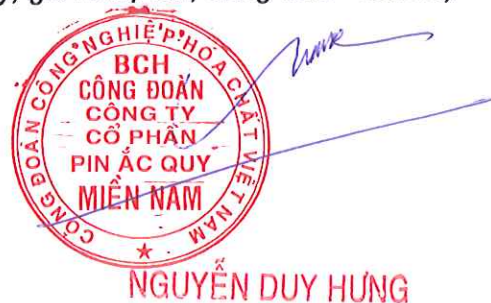 CÔNG ĐOÀN CÔNG NGHIỆP HÓA CHẤT VIỆT NAM
BCH
CÔNG ĐOÀN
CÔNG TY
CỔ PHẦN
PIN ẮC QUY
MIỀN NAM
NGUYỄN DUY HƯNG